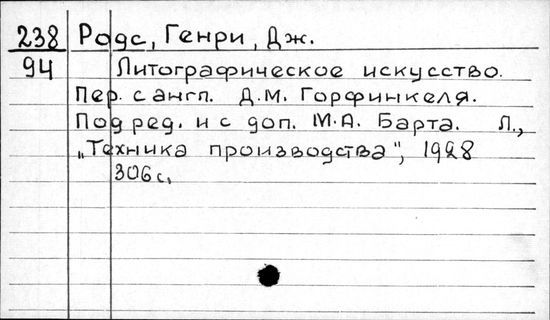 238 Родс, Генри, Дж.
94 Литографическое искусство.
Пер. с англ. Д.М. Горфинкеля.
Под ред. и с доп. М.А. Барта. Л.,
„Техника производства", 1928
306 с,